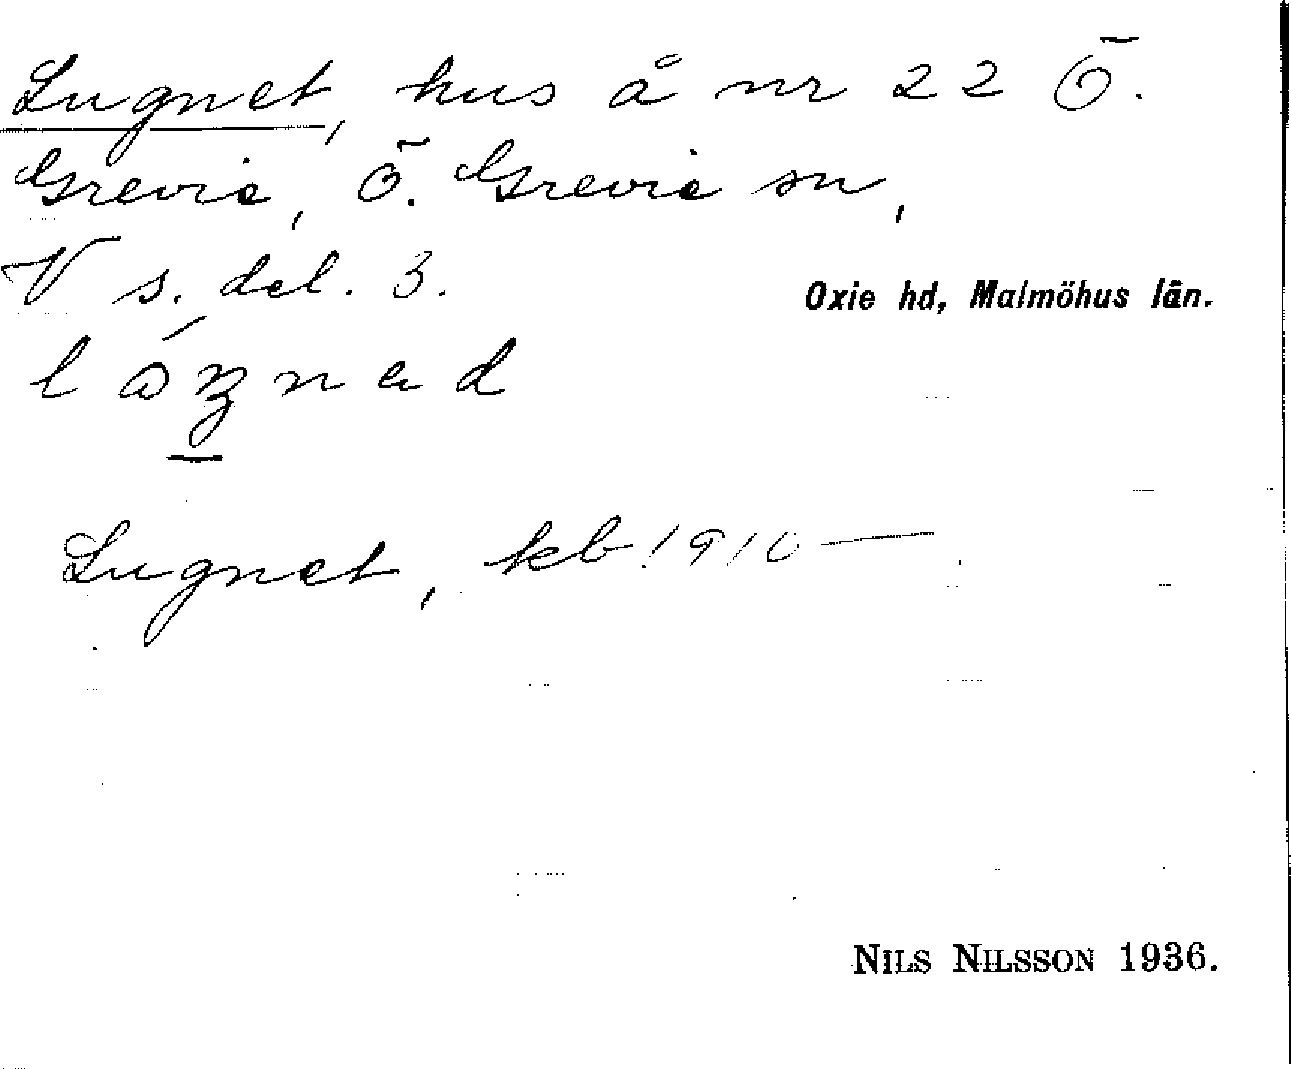 Lugnet, hus å nr 22 Ö.
Grevie, Ö. Grevie sn,
V s. del. 3.
Oxie hd, Malmöhus län.
Lugnet, kb 1910—
NILS NILSSON 1936.